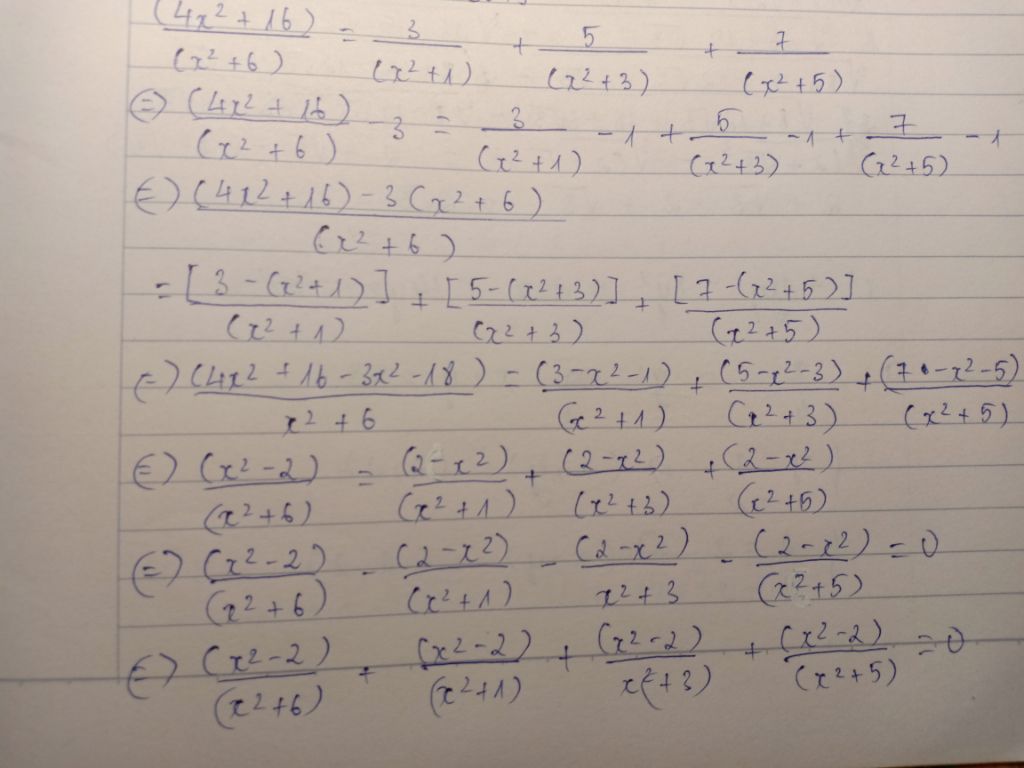 (4x² + 16)/(x² + 6) = 3/(x² + 1) + 5/(x² + 3) + 7/(x² + 5)
⇔) (4x² + 16)/(x² + 6) - 3 = 3/(x² + 1) - 1 + 5/(x² + 3) - 1 + 7/(x² + 5) - 1
⇔) (4x² + 16) - 3(x² + 6)/(x² + 6)
= [3 - (x² + 1)]/(x² + 1) + [5 - (x² + 3)]/(x² + 3) + [7 - (x² + 5)]/(x² + 5)
⇔) (4x² + 16 - 3x² - 18)/x² + 6 = (3 - x² - 1)/(x² + 1) + (5 - x² - 3)/(x² + 3) + (7 - x² - 5)/(x² + 5)
⇔) (x² - 2)/(x² + 6) = (2 - x²)/(x² + 1) + (2 - x²)/(x² + 3) + (2 - x²)/(x² + 5)
⇔) (x² - 2)/(x² + 6) - (2 - x²)/(x² + 1) - (2 - x²)/x² + 3 - (2 - x²)/(x² + 5) = 0
⇔) (x² - 2)/(x² + 6) + (x² - 2)/(x² + 1) + (x² - 2)/x² + 3) + (x² - 2)/(x² + 5) = 0